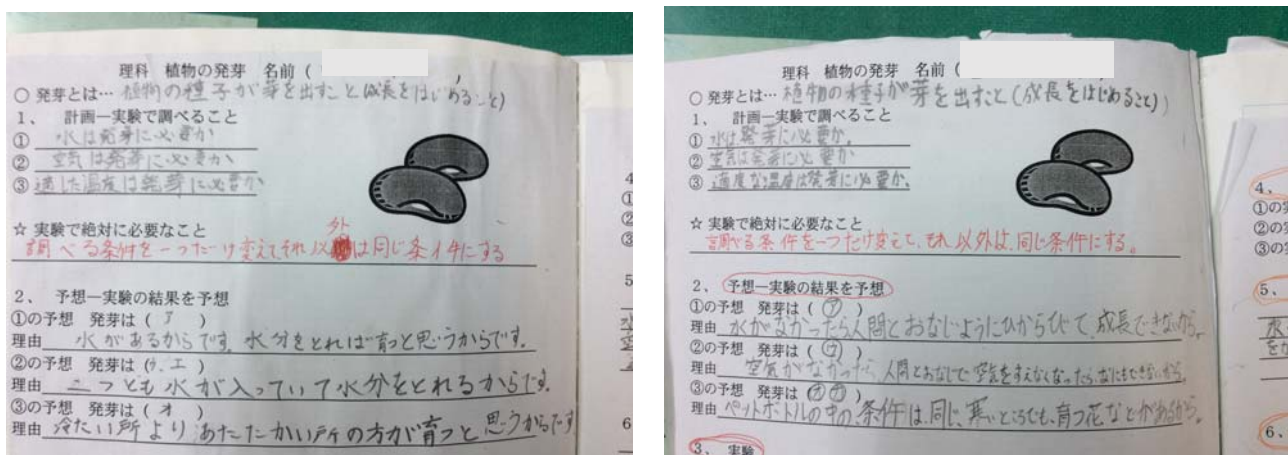 理科 植物の発芽 名前(
○ 発芽とは… 植物の種子が芽を出すこと(成長をはじめること)
1、 計画ー実験で調べること
① 水は発芽に必要か
② 空気は発芽に必要か
③ 適した温度は発芽に必要か
☆ 実験で絶対に必要なこと
調べる条件を一つだけ変えてそれ以外は同じ条件にする
2、 予想ー実験の結果を予想
①の予想 発芽は( ア )
理由 水があるからです。水分をとれば育つと思うからです。
②の予想 発芽は( ウ、エ )
理由 二つとも水が入っていて水分をとれるからです。
③の予想 発芽は( オ )
理由 冷たい所よりあたたかい所の方が育つと思うからです
4
①
②
③
5
6
理科 植物の発芽 名前(
○ 発芽とは… 植物の種子が芽を出すこと(成長をはじめること)
1、 計画ー実験で調べること
① 水は発芽に必要か。
② 空気は発芽に必要か
③ 適度な温度は発芽に必要か。
☆ 実験で絶対に必要なこと
調べる条件を一つだけ変えて、それ以外は、同じ条件にする。
2、 予想ー実験の結果を予想
①の予想 発芽は( ア )
理由 水がなかったら人間とおなじようにひからびて、成長できないから。
②の予想 発芽は( ウ )
理由 空気がなかったら、人間とおなじで空気をすえなくなったら、なにもできないから。
③の予想 発芽は( オ カ )
理由 ペットボトルの中の、条件は、同じ、寒いところでも、育つ花などがあるから。
3、 実験
4、
①の実
②の実
③の実
5、
6、